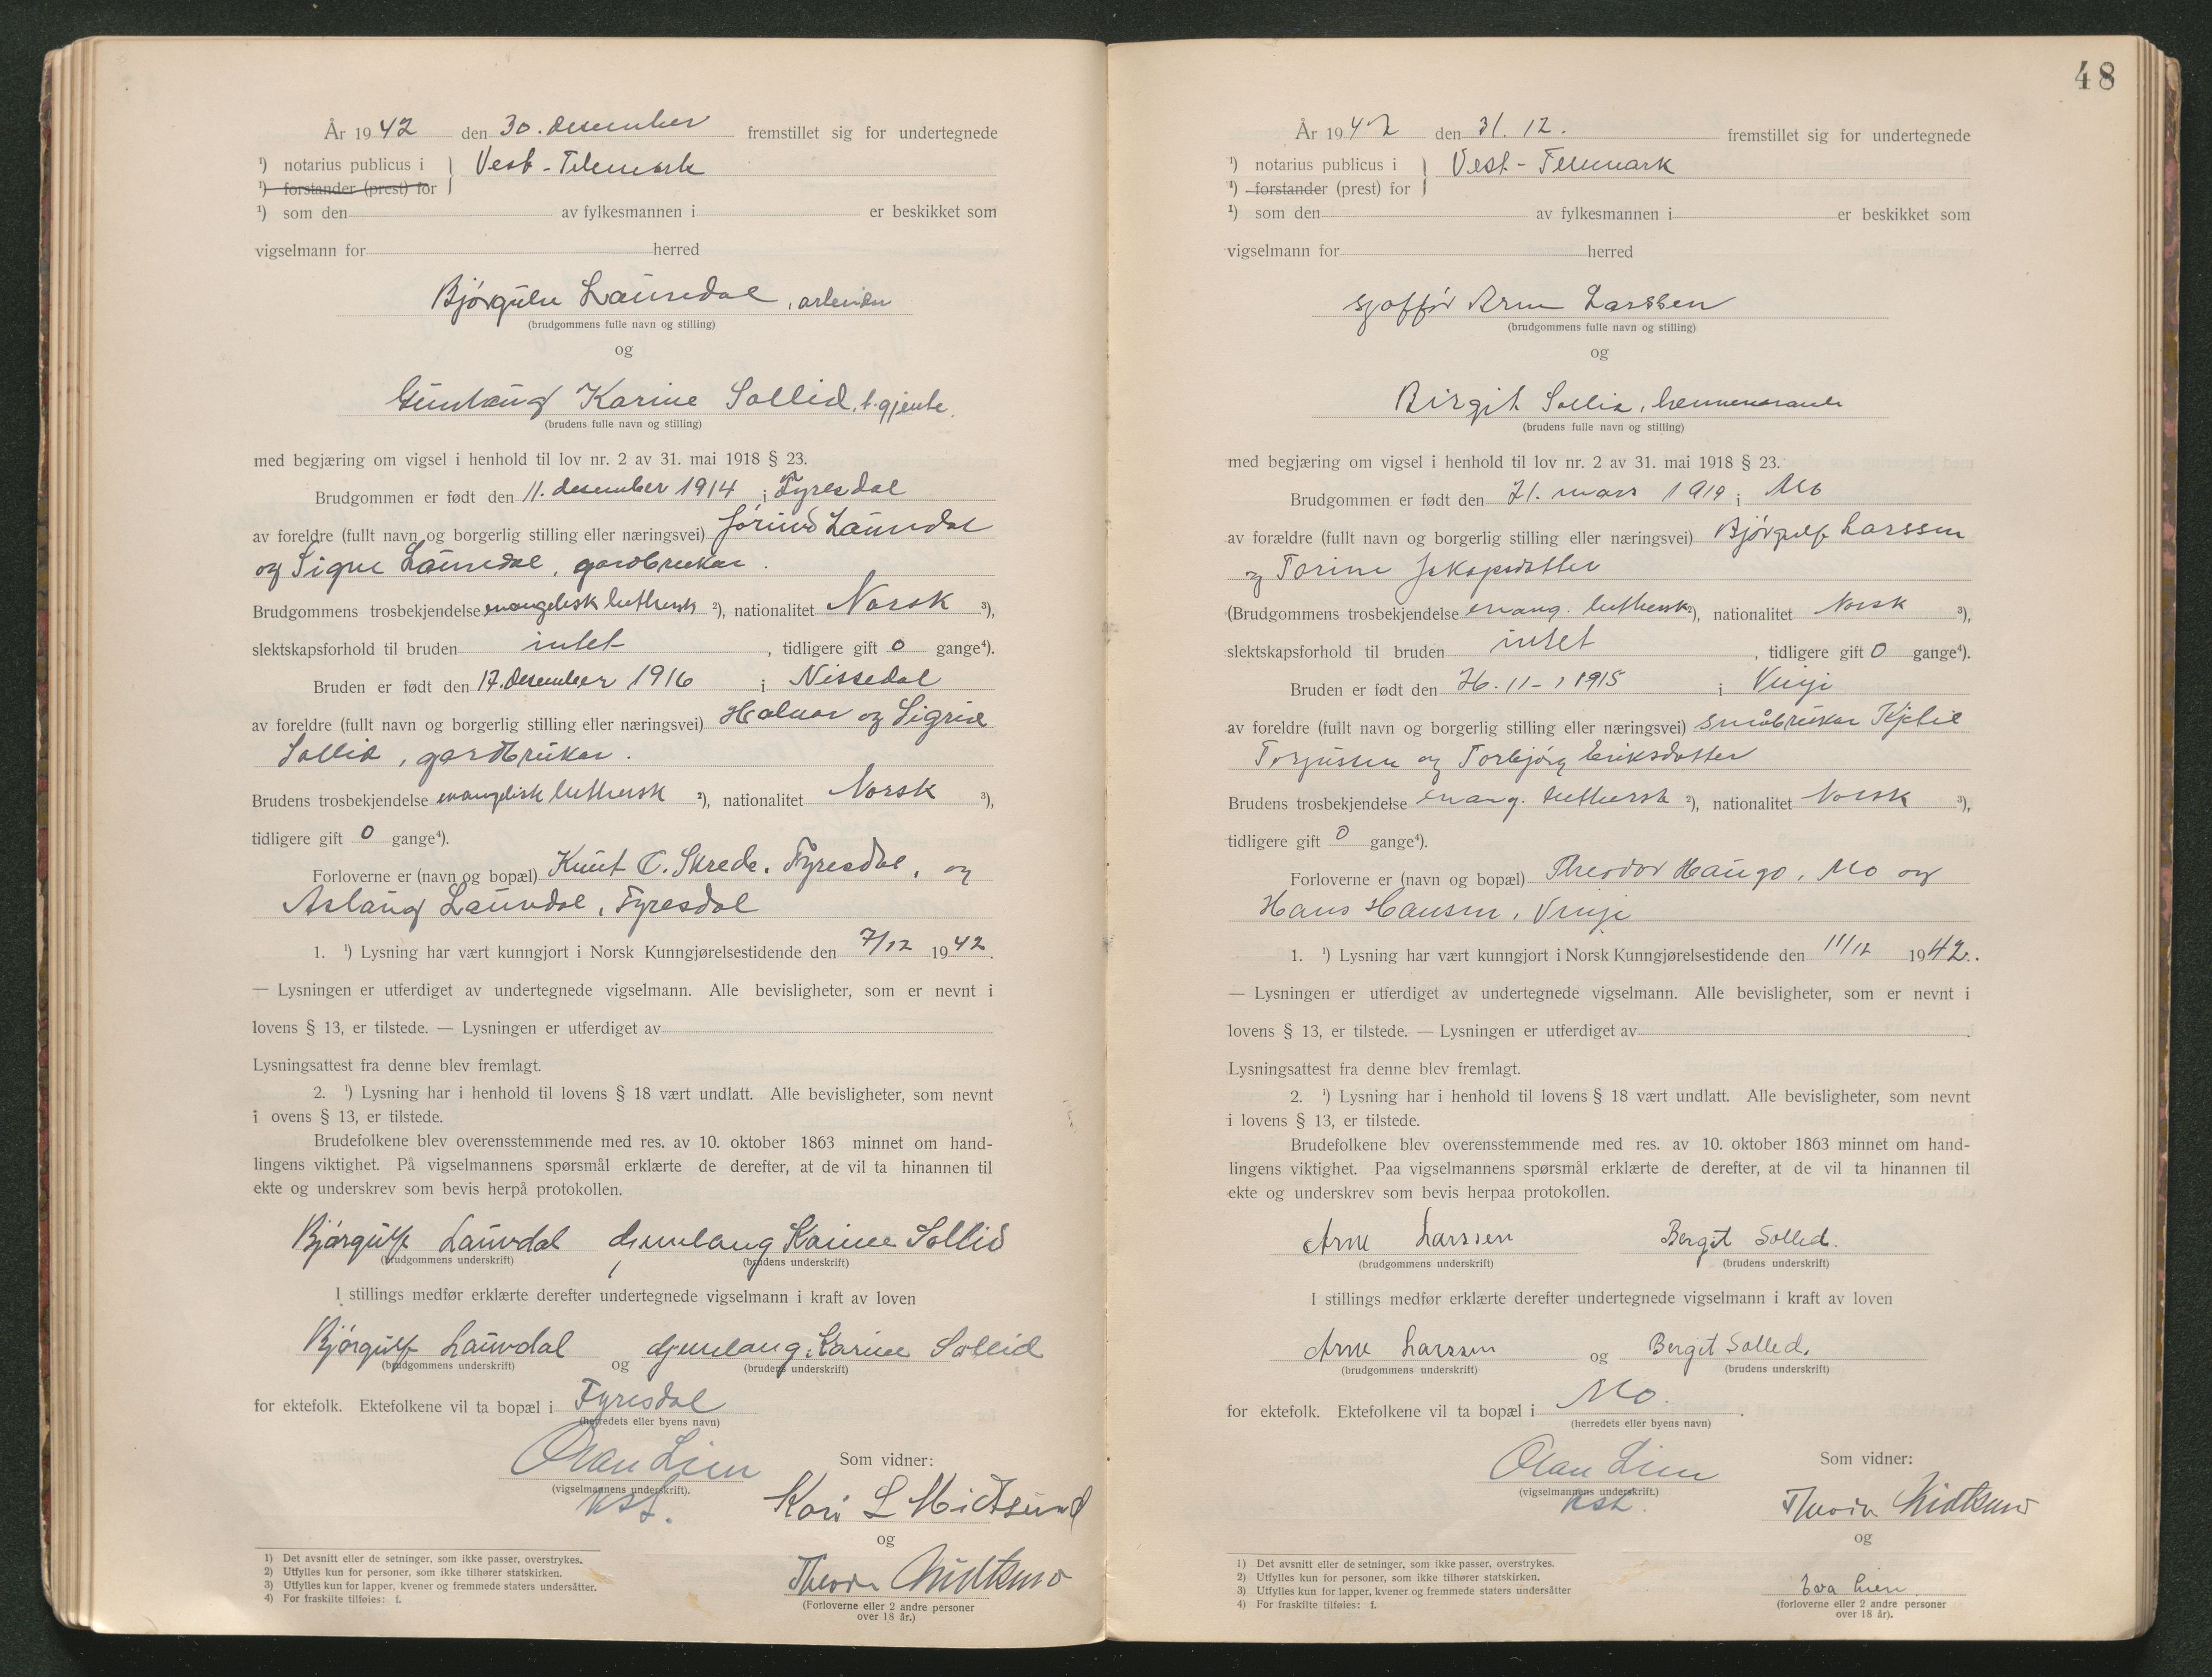 År 1942 den 30. desember fremstillet sig for undertegnede
¹) notarius publicus i } Vest-Telemark
¹) forstander (prest) for
¹) som den av fylkesmannen i er beskikket som
vigselmann for herred
Bjørgulv Launedal, arbeider
(brudgommens fulle navn og stilling)
og
Gunlaug Karine Sollid, t. gjente.
(brudens fulle navn og stilling)
med begjæring om vigsel i henhold til lov nr. 2 av 31. mai 1918 § 23.
Brudgommen er født den 11. desember 1914 i Fyresdal
av foreldre (fullt navn og borgerlig stilling eller næringsvei) Jørund Lauvdal
og Signe Lauvdal, gardbrukar.
Brudgommens trosbekjendelse evangelisk luthersk ²), nationalitet Norsk ³),
slektskapsforhold til bruden intet, tidligere gift 0 gange⁴).
Bruden er født den 17. desember 1916 i Nissedal
av foreldre (fullt navn og borgerlig stilling eller næringsvei) Halvor og Sigrid
Sollid, gardbrukar.
Brudens trosbekjendelse evangelisk luthersk ²), nationalitet Norsk ³),
tidligere gift 0 gange⁴).
Forloverne er (navn og bopæl) Knut O. Skrede, Fyresdal, og
Aslaug Lauvdal, Fyresdal
1. ¹) Lysning har vært kunngjort i Norsk Kunngjørelsestidende den 7/12 1942.
— Lysningen er utferdiget av undertegnede vigselmann. Alle bevisligheter, som er nevnt i
lovens § 13, er tilstede. — Lysningen er utferdiget av
Lysningsattest fra denne blev fremlagt.
2. ¹) Lysning har i henhold til lovens § 18 vært undlatt. Alle bevisligheter, som nevnt
i ovens § 13, er tilstede.
Brudefolkene blev overensstemmende med res. av 10. oktober 1863 minnet om hand-
lingens viktighet. På vigselmannens spørsmål erklærte de derefter, at de vil ta hinannen til
ekte og underskrev som bevis herpå protokollen.
Bjørgulf Lauvdal Gunlaug Karine Sollid
(brudgommens underskrift) (brudens underskrift)
I stillings medfør erklærte derefter undertegnede vigselmann i kraft av loven
Bjørgulf Lauvdal og Gunlaug Karine Sollid
(brudgommens underskrift) (brudens underskrift)
for ektefolk. Ektefolkene vil ta bopæl i Fyresdal
(herredets eller byens navn)
Olav Lien
(vigselmannens underskrift).
kst.
Som vidner:
Kari L Midtsund
og
Theodor Midtsund
(Forloverne eller 2 andre personer
over 18 år.)
1) Det avsnitt eller de setninger, som ikke passer, overstrykes.
2) Utfylles kun for personer, som ikke tilhører statskirken.
3) Utfylles kun for lapper, kvener og fremmede staters undersåtter.
4) For fraskilte tilføies: f.
48
År 1942 den 31. 12. fremstillet sig for undertegnede
¹) notarius publicus i } Vest-Telemark
¹) forstander (prest) for
¹) som den av fylkesmannen i er beskikket som
vigselmann for herred
sjaffør Arne Larssen
(brudgommens fulle navn og stilling)
og
Birgit Sollid, heimeverande
(brudens fulle navn og stilling)
med begjæring om vigsel i henhold til lov nr. 2 av 31. mai 1918 § 23.
Brudgommen er født den 21. mars 1919 i Mo
av forældre (fullt navn og borgerlig stilling eller næringsvei) Bjørgulf Larssen
og Torine Jakopsdotter
(Brudgommens trosbekjendelse evang. luthersk ²), nationalitet Norsk ³),
slektskapsforhold til bruden intet, tidligere gift 0 gange⁴).
Bruden er født den 26. 11 - 1915 i Vinje
av foreldre (fullt navn og borgerlig stilling eller næringsvei) småbrukar Kjetil
Torjussen og Torbjørg Eriksdotter
Brudens trosbekjendelse evang. luthersk ²), nationalitet Norsk ³),
tidligere gift 0 gange⁴).
Forloverne er (navn og bopæl) Theodor Haugo, Mo og
Hans Hansen, Vinje
1. ¹) Lysning har vært kunngjort i Norsk Kunngjørelsestidende den 11/12 1942.
— Lysningen er utferdiget av undertegnede vigselmann. Alle bevisligheter, som er nevnt i
lovens § 13, er tilstede. — Lysningen er utferdiget av
Lysningsattest fra denne blev fremlagt.
2. ¹) Lysning har i henhold til lovens § 18 vært undlatt. Alle bevisligheter, som nevnt
i lovens § 13, er tilstede.
Brudefolkene blev overensstemmende med res. av 10. oktober 1863 minnet om hand-
lingens viktighet. Paa vigselmannens spørsmål erklærte de derefter, at de vil ta hinannen til
ekte og underskrev som bevis herpaa protokollen.
Arne Larssen Bergit Sollid.
(brudgommens underskrift) (brudens underskrift)
I stillings medfør erklærte derefter undertegnede vigselmann i kraft av loven
Arne Larssen og Bergit Sollid.
(brudgommens underskrift) (brudens underskrift)
for ektefolk. Ektefolkene vil ta bopæl i Mo.
(herredets eller byens navn)
Olav Lien
(vigselmannens underskrift.)
kst.
Som vidner:
Theodor Midtsund
og
Eva Lien.
(forloverne eller 2 andre personer
over 18 år).
1) Det avsnitt eller de setninger, som ikke passer, overstrykes.
2) Utfylles kun for personer, som ikke tilhører statskirken.
3) Utfylles kun for lapper, kvener og fremmede staters undersåtter
4) For fraskilte tilføies: f.